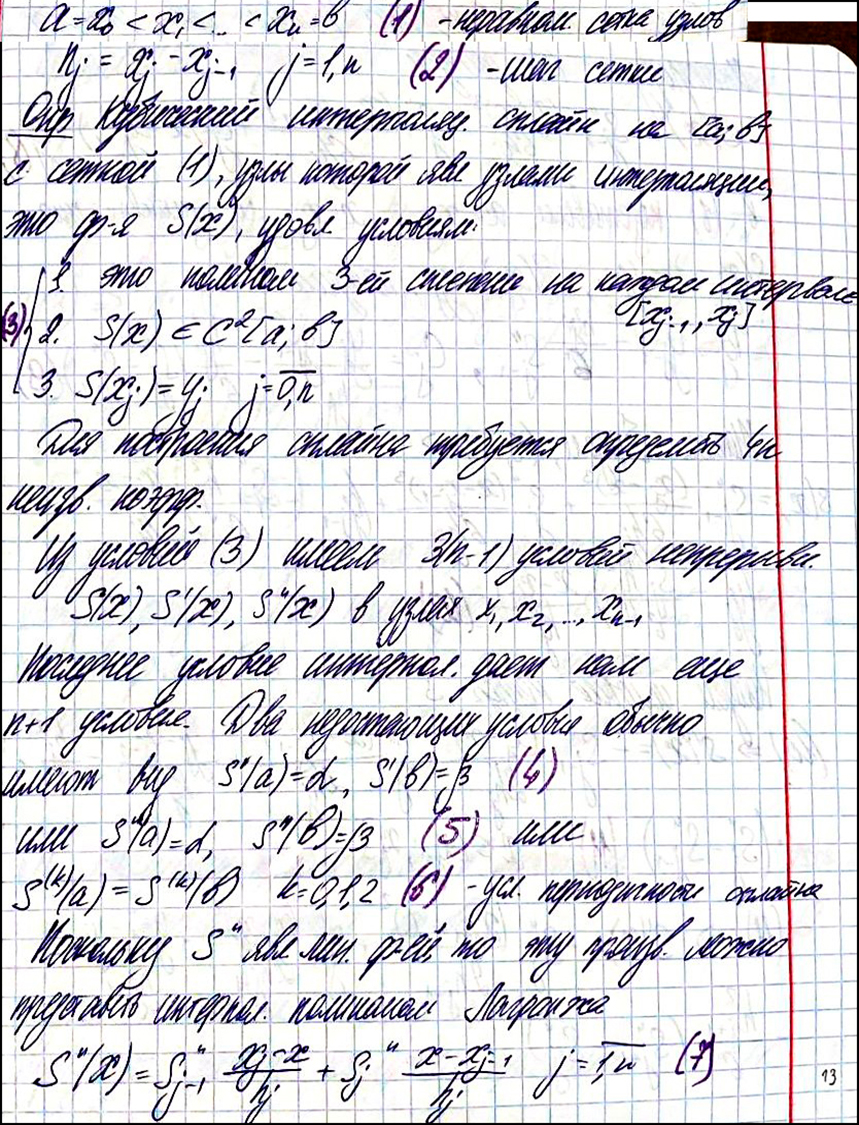 a = x₀ < x₁ < .. < xₙ = b (1) - неравном. сетка узлов
hⱼ = xⱼ - xⱼ₋₁ j = 1,n (2) - шаг сетки
Опр Кубический интерполяц. сплайн на [a; b]
с сеткой (1), узлы которой явл узлами интерполяции,
это ф-я S(x), удовл условиям:
1. это полином 3-ей степени на каждом интервале
[xⱼ₋₁, xⱼ]
(3) 2. S(x) ∈ C²[a; b]
3. S(xⱼ) = yⱼ j = 0,n
Для построения сплайна требуется определить 4n
неизв. коэфф.
Из условий (3) имеем 3(n-1) условий непрерывн.
S(x), S'(x), S''(x) в узлах x₁, x₂, ..., xₙ₋₁
Последнее условие интерпол. дает нам еще
n+1 условие. Два недостающих условия обычно
имеют вид S'(a) = α, S'(b) = β (4)
или S''(a) = α, S''(b) = β (5) или
S⁽ᵏ⁾(a) = S⁽ᵏ⁾(b) k = 0,1,2 (6) - усл. периодичности сплайна
Поскольку S'' явл лин. ф-ей, то эту произв. можно
представить интерпол. полиномом Лагранжа
S''(x) = S''ⱼ₋₁ (xⱼ - x)/hⱼ + Sⱼ'' (x - xⱼ₋₁)/hⱼ j = 1,n (7)
13